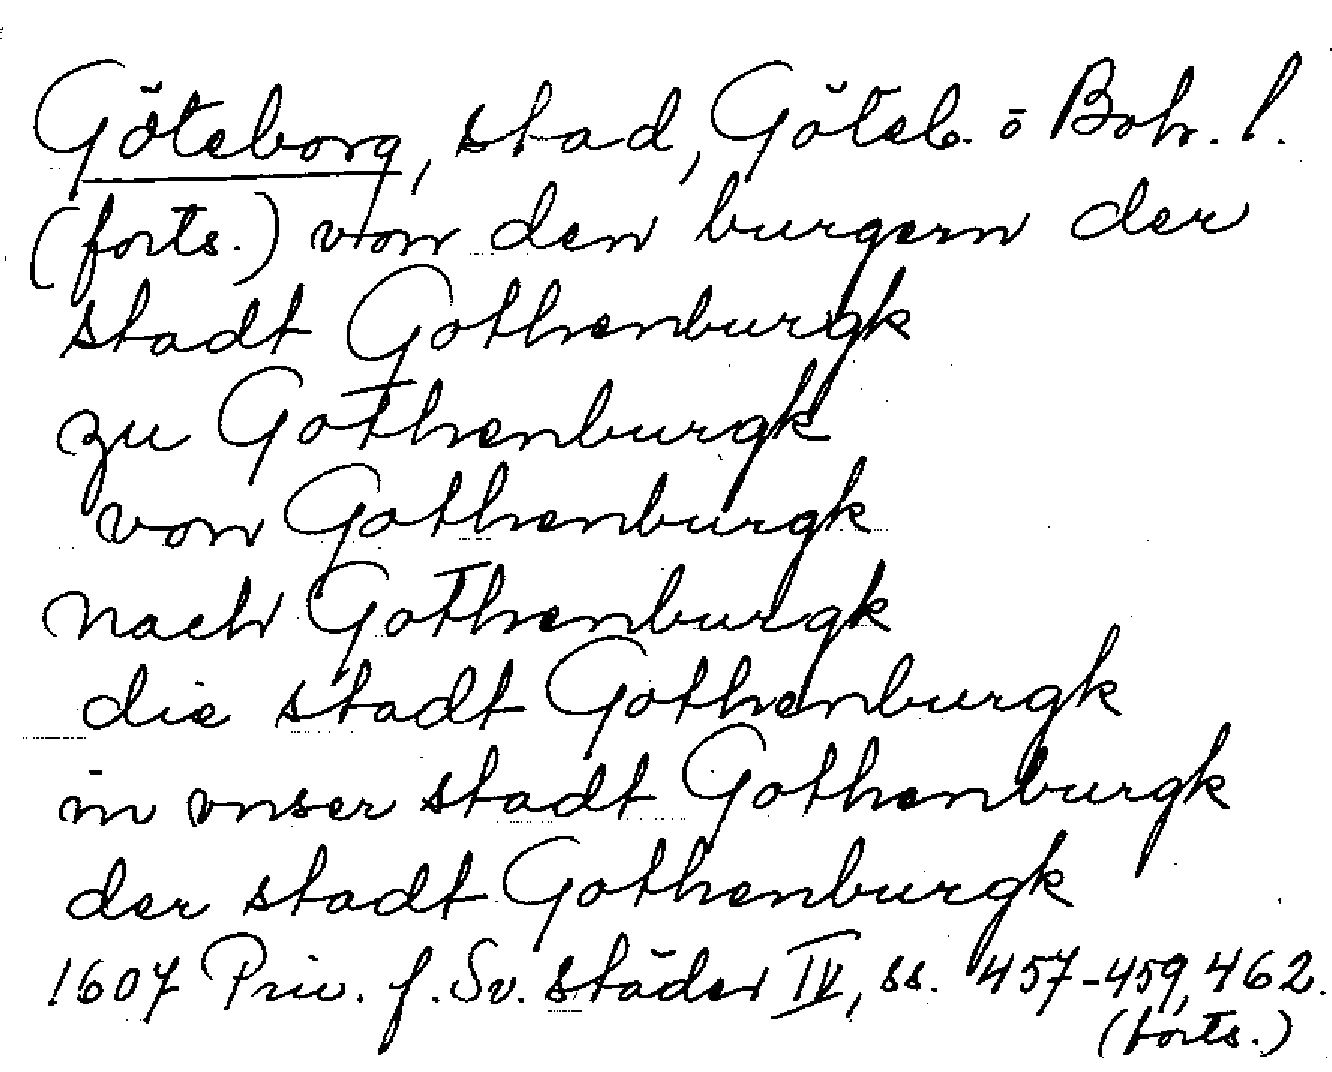 Göteborg, stad, Göteb. o Boh. l.
(forts.) von den burgern der
stadt Gothenburgk
zu Gothenburgk
von Gothenburgk
nach Gothenburgk
die stadt Gothenburgk
in vnser stadt Gothenburgk
der stadt Gothenburgk
1607 Priv. f. Sv. städer IV, ss. 457-459, 462.
(forts.)